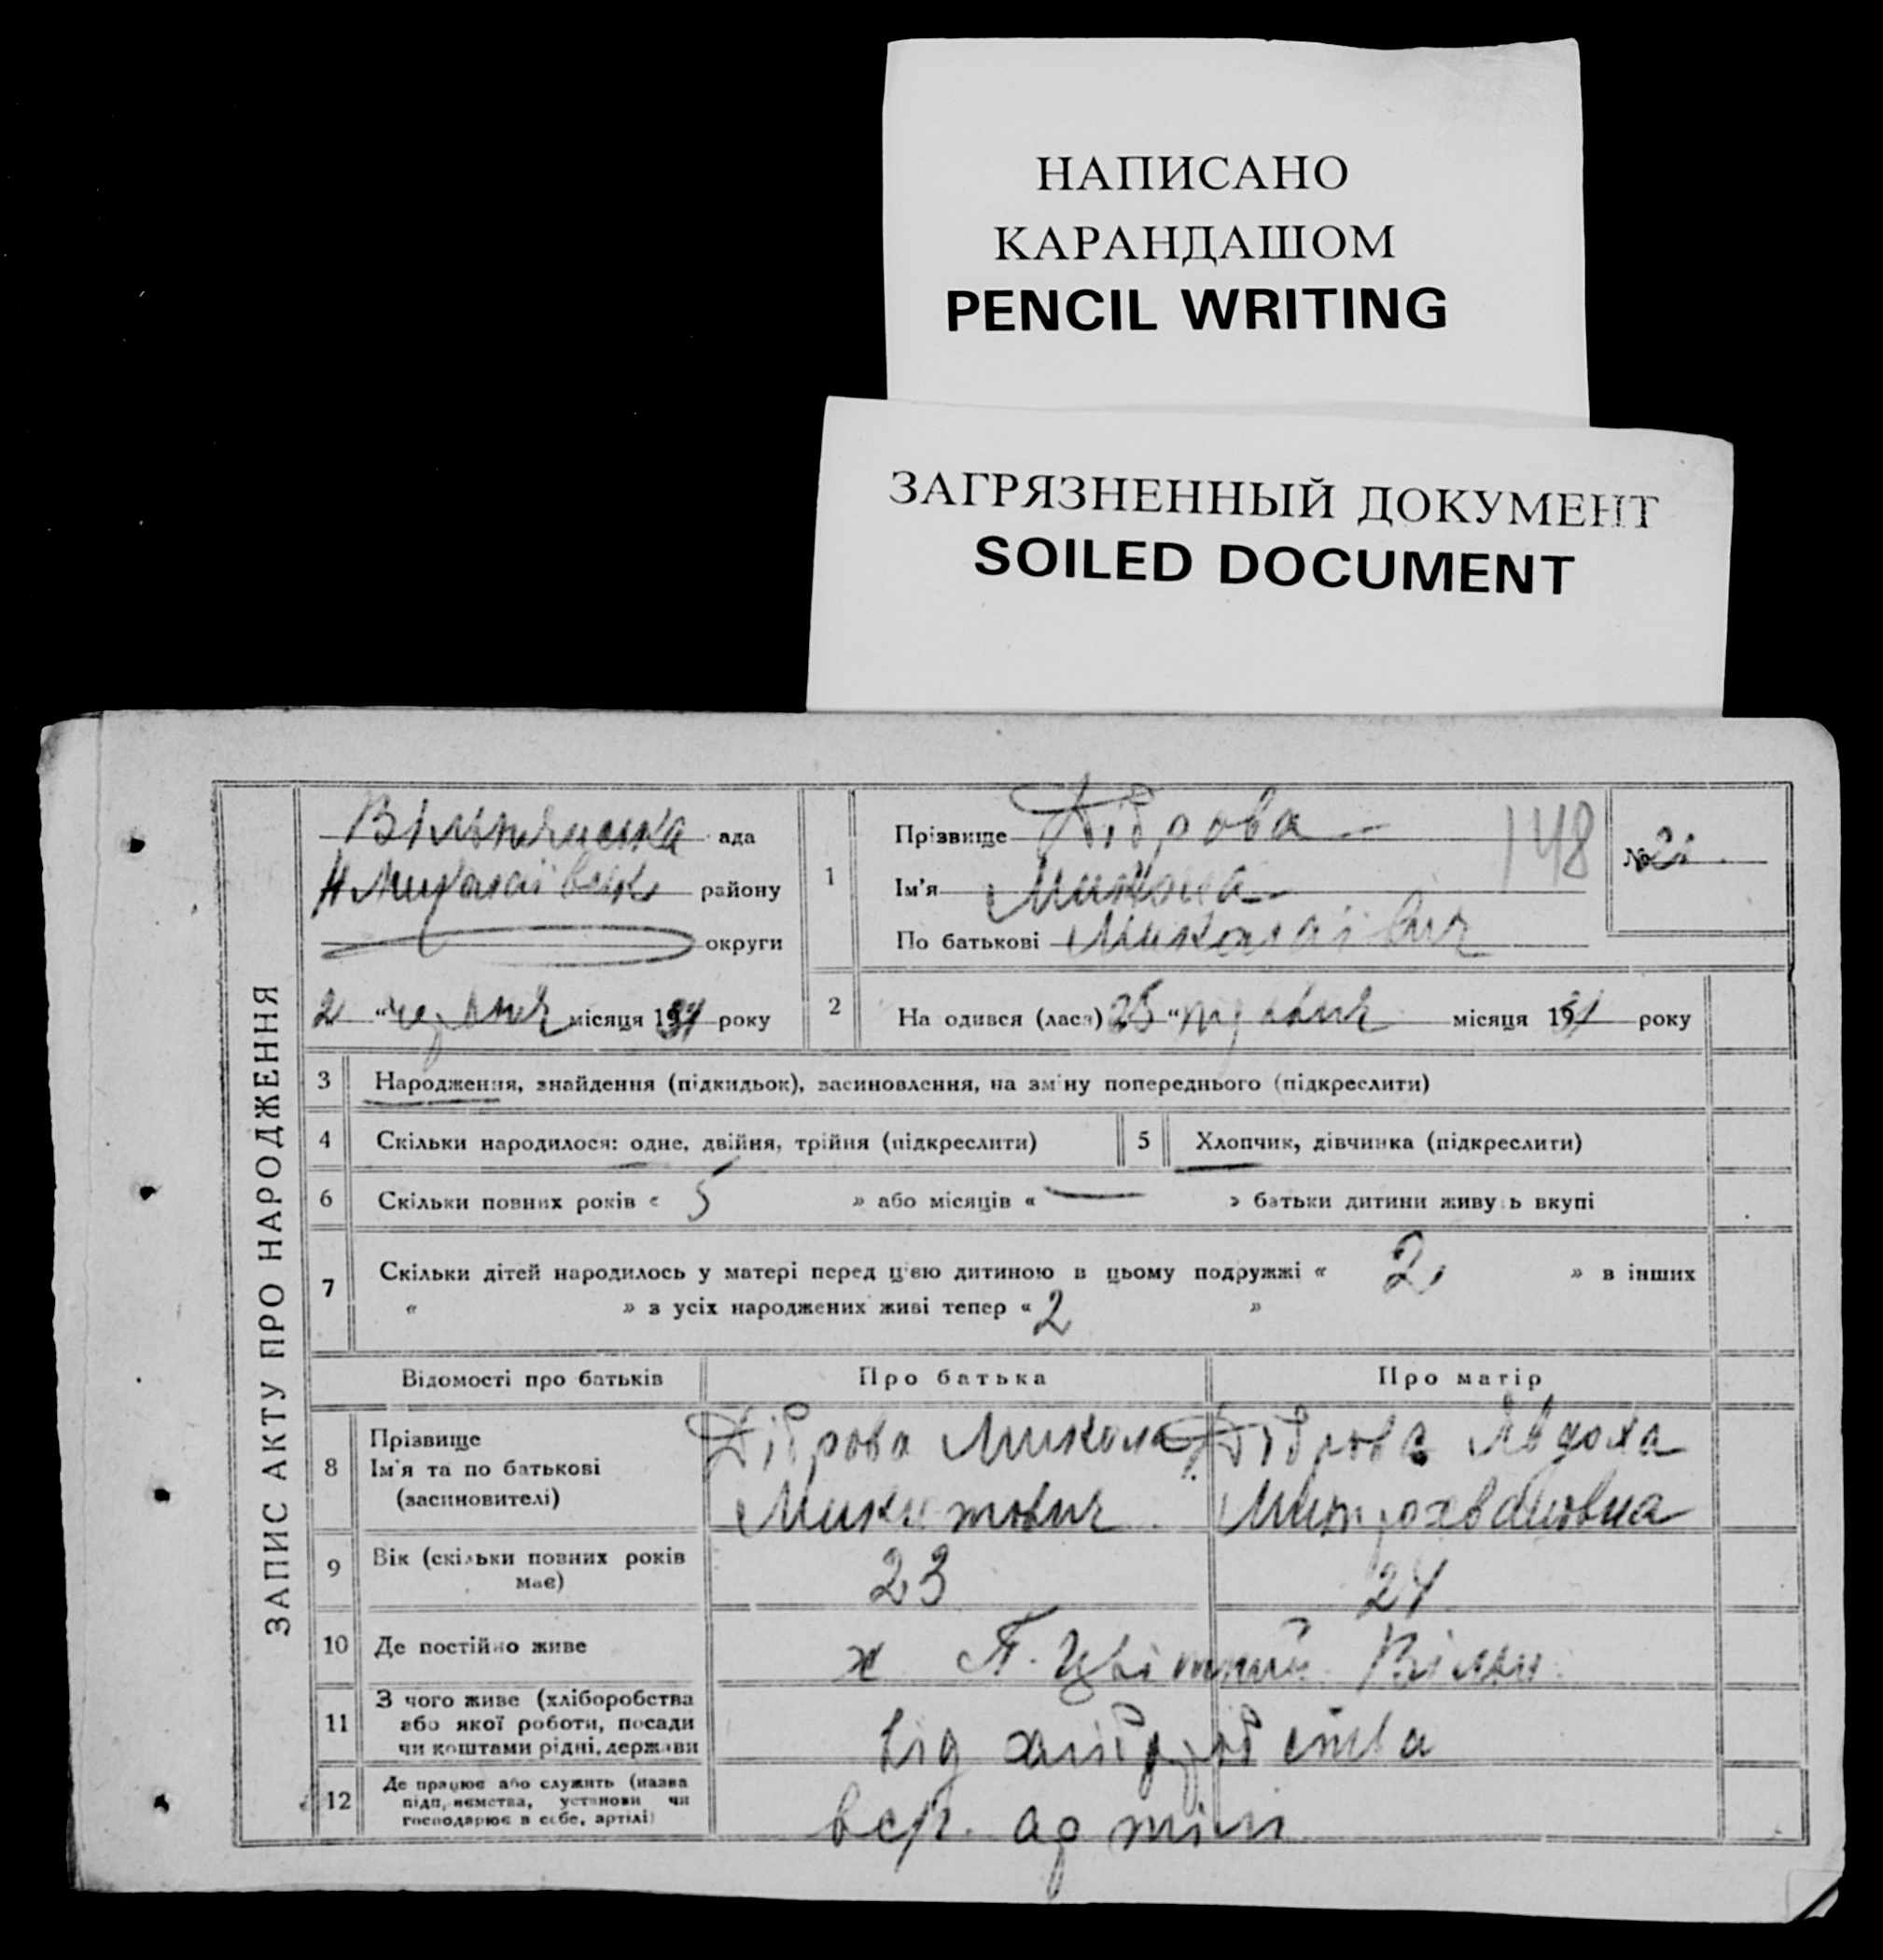 НАПИСАНО
КАРАНДАШОМ
PENCIL WRITING
ЗАГРЯЗНЕННЫЙ ДОКУМЕНТ
SOILED DOCUMENT
ЗАПИС АКТУ ПРО НАРОДЖЕННЯ
ада
району
округи
2 " червня місяця 1931 року
1
Прізвище Діброва
Ім'я Микола
По батькові Миколаівич
148
№ 21
2
На одився (лася) 25 " місяця 1931 року
3 Народження, знайдення (підкидьок), засиновлення, на зміну попереднього (підкреслити)
4 Скільки народилося: одне, двійня, трійня (підкреслити)
5 Хлопчик, дівчинка (підкреслити)
6 Скільки повних років « 5 » або місяців « — » батьки дитини живуть вкупі
7 Скільки дітей народилось у матері перед цією дитиною в цьому подружжі « 2 » в інших
« » з усіх народжених живі тепер « 2 »
Відомості про батьків Про батька Про матір
8 Прізвище
Ім'я та по батькові
(засиновителі)
Діброва Микола
Микитович
Діброва Явдоха
9 Вік (скільки повних років
має)
23
24
10 Де постійно живе
х
11 З чого живе (хліборобства
або якої роботи, посади
чи коштами рідні, держави
від хліборобства
12 Де працює або служить (назва
підприємства, установи чи
господарює в себе, артілі)